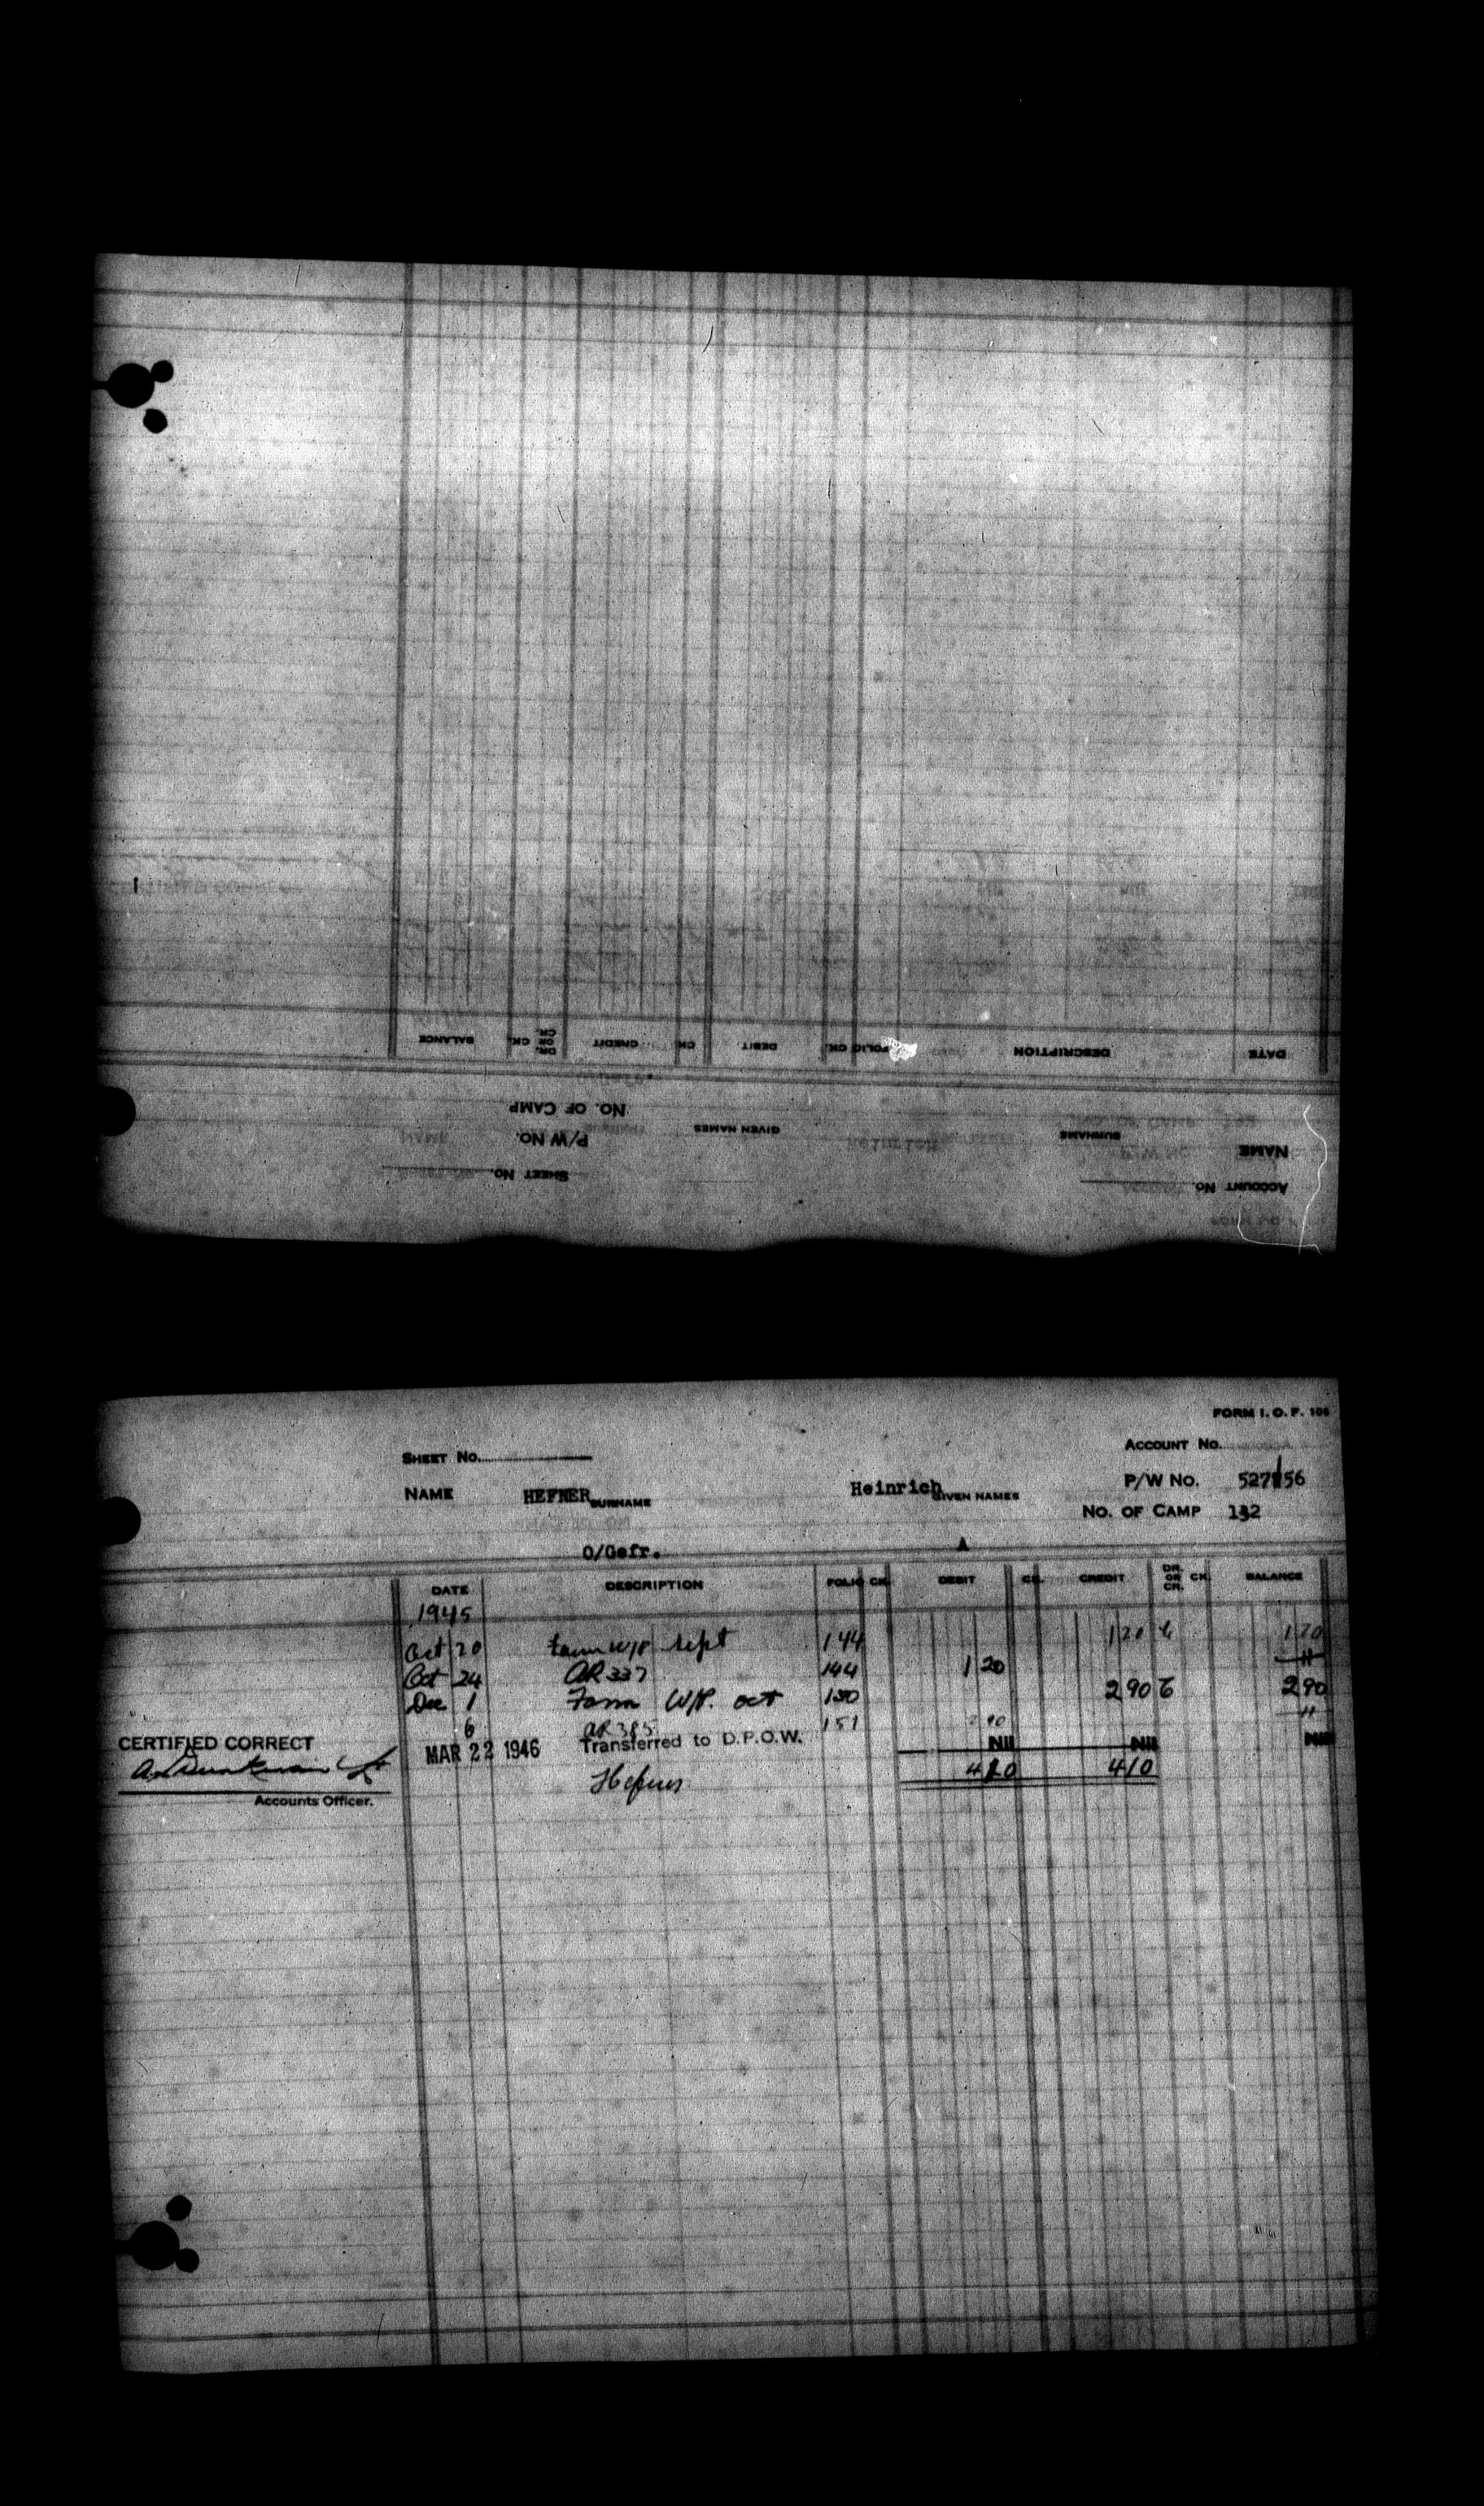 BALANCE DR. OR CR. CK. CREDIT CK. DEBIT FOLIO CK. DESCRIPTION DATE
NO. OF CAMP
P/W NO. GIVEN NAMES SURNAME NAME
SHEET NO. ACCOUNT NO.
FORM I. O. F. 106
SHEET NO. ACCOUNT NO.
NAME HEFNER SURNAME Heinrich GIVEN NAMES P/W NO. 527756
NO. OF CAMP 132
O/Gefr. A
DATE DESCRIPTION FOLIO CK. DEBIT CK. CREDIT DR. OR CR. CK. BALANCE
1945
Oct 20 farm W/P Sept 144 1 20 1 20
Oct 24 AR 337 144 1 20
Dec 1 Farm W/P. oct 150 2 90 2 90
6 AR 385 151 2 90
CERTIFIED CORRECT MAR 22 1946 Transferred to D.P.O.W. Nil Nil Nil
4 10 4 10
Accounts Officer.